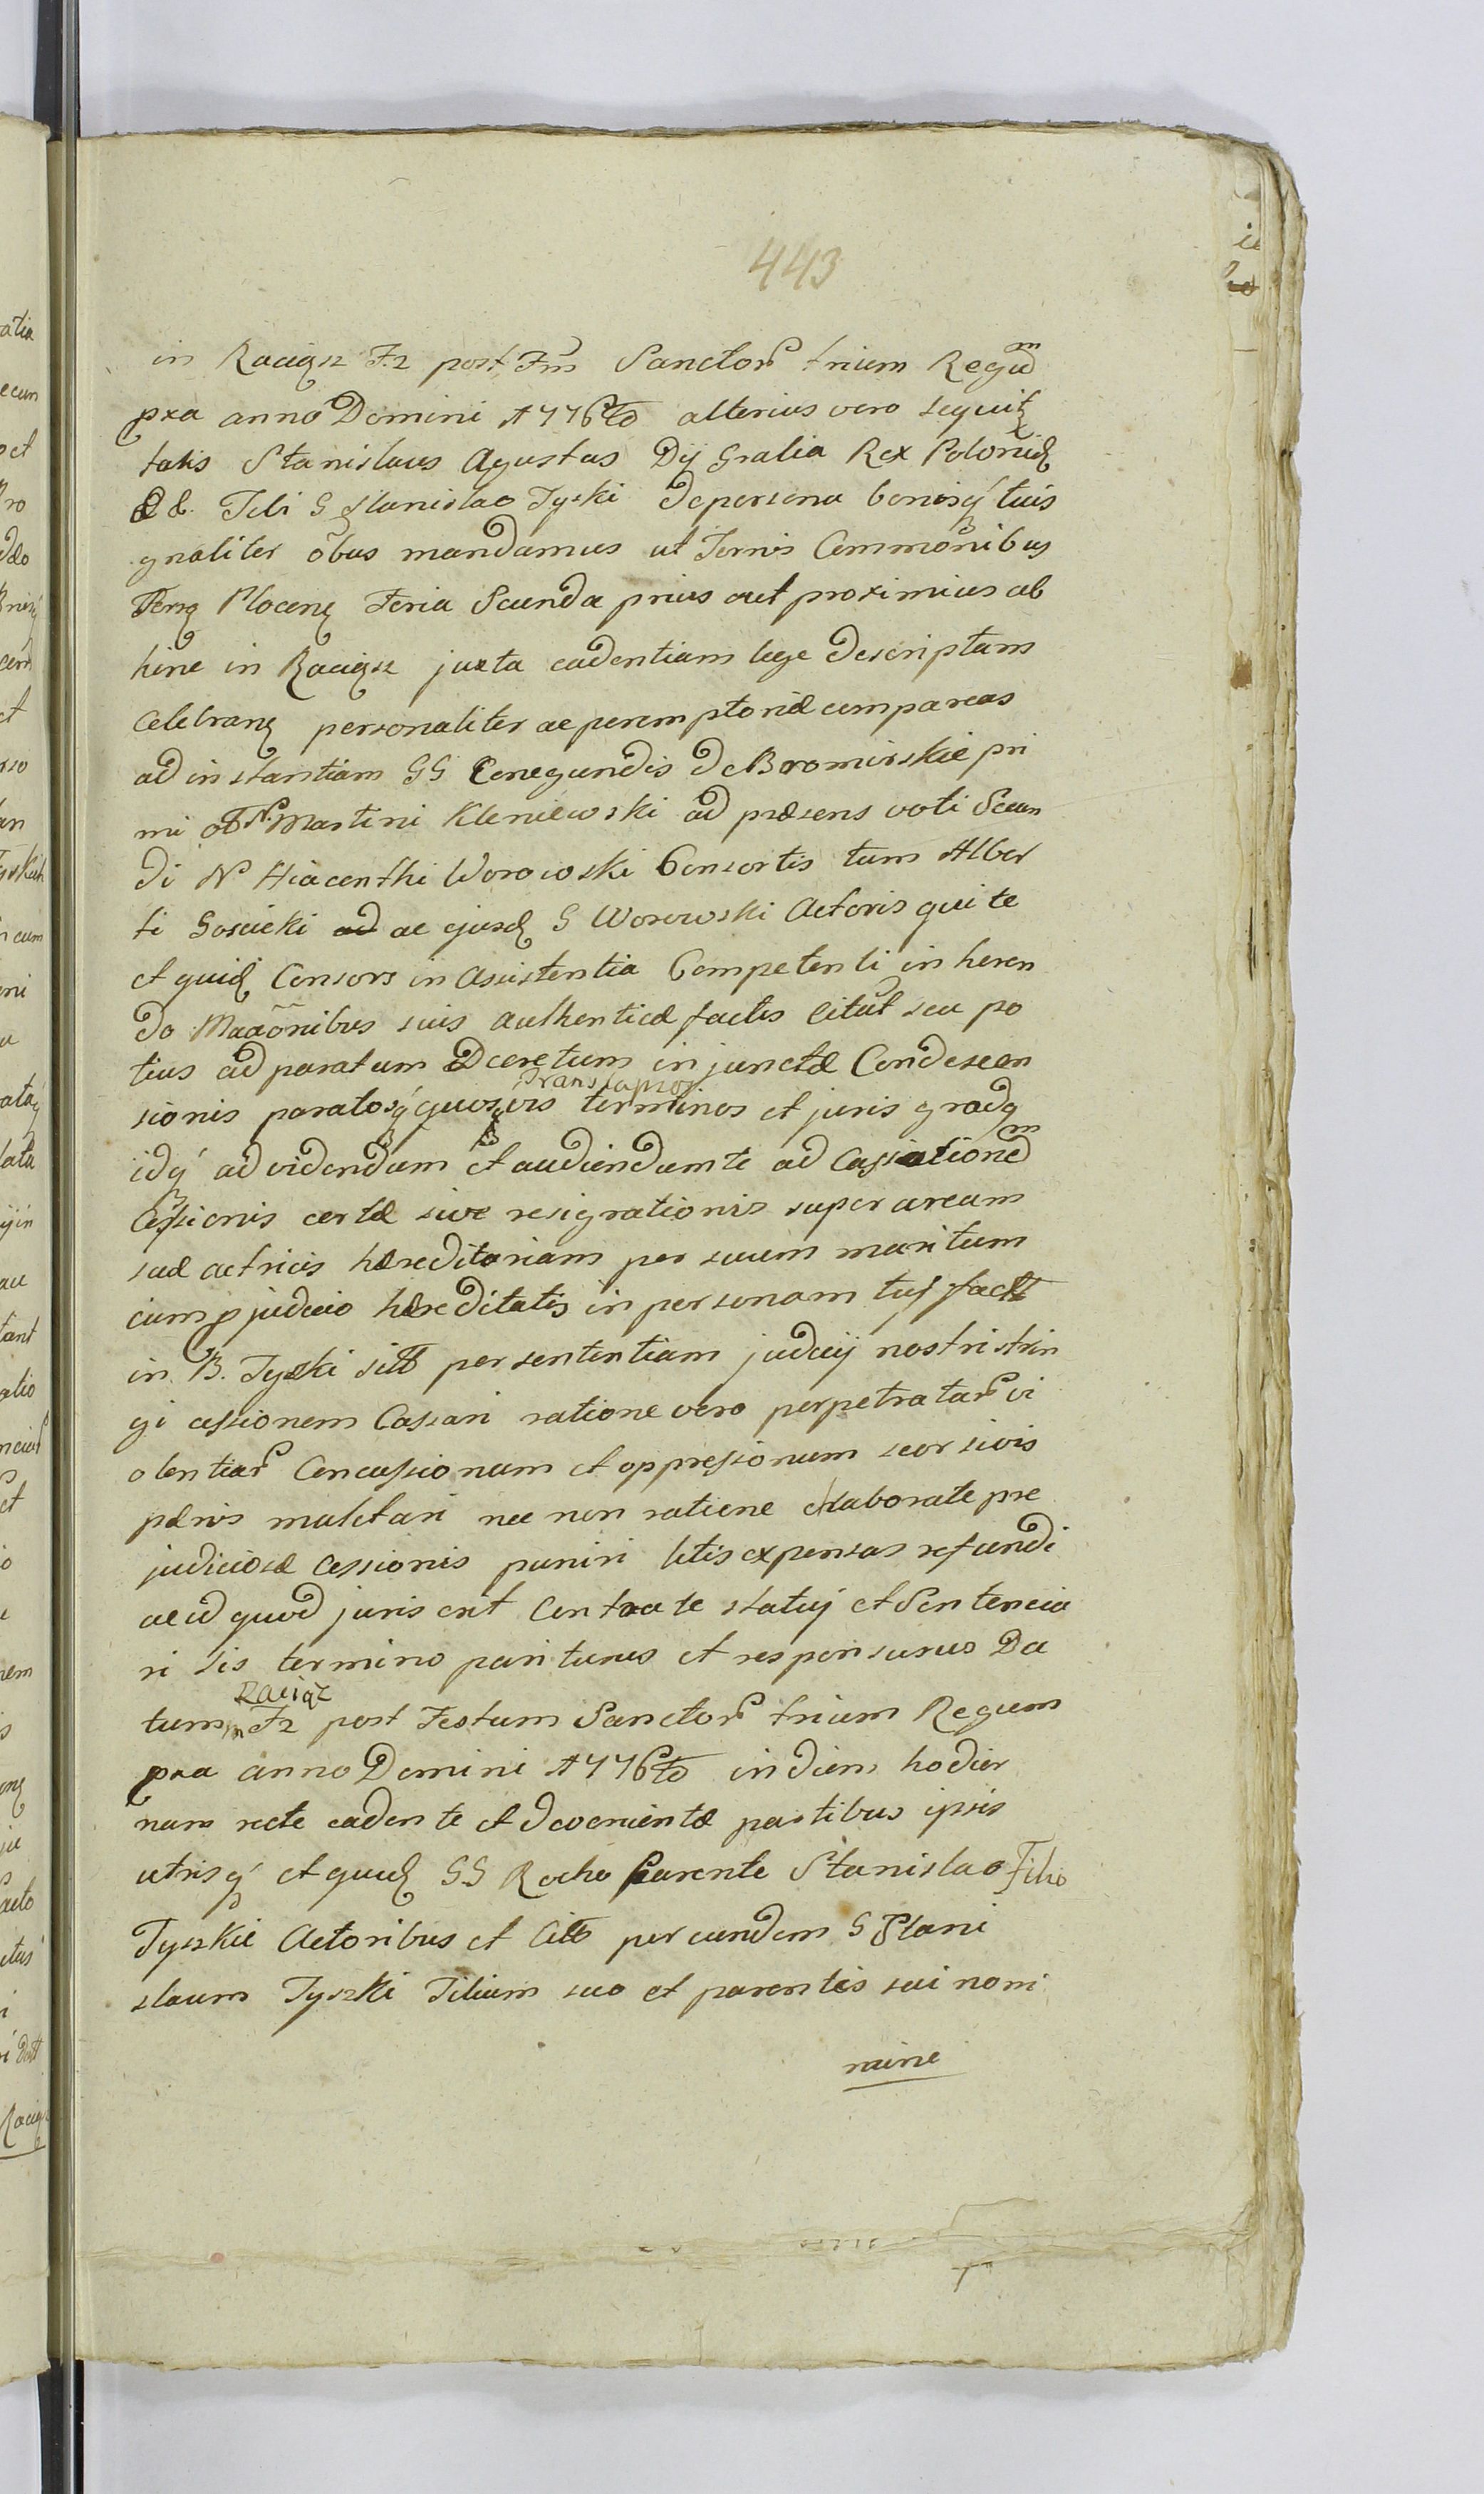 443
in Raciąsz F. 2 post Fm Sanctor trium Regu͂m
pxa anno Domini 1776to alterius vero sequitz
talis Stanislaus Agustus Dij Gratia Rex Poloniæ
&&. Tibi G Stanislao Tyski de persona bonisq́ tuis
gnaliter o͂bus mandamus ut Termis Commonibus
Terrz Plocenz Feria Scunda prius aut proximius ab
hinc in Raciąsz juxta cadentiam lege descriptam
Celebranz personaliter ac peremptoriæ compareas
ad instantiam GG Cenegundis de Bromirskie pri
mi olt N. Martini Kleniewski ad præsens voti Scun
di N Hiacenthi Worowski Consortis tum Alber
ti Goscicki ad ac ejusd G Worowski Actoris qui te
et quid Consors in Assistentia Competenti in heren
do Maãonibus suis authenticæ factis Citat seu po
tius ad paratum Dcretum injunctæ Condescen
Translapsos
sionis paratosq́ quosvis terminos et juris gradq
idq́ ad videndum et audiendum te ad Cassationem
Cessionis certæ sive resignationis super aream
suæ actricis hæreditariam per suum maritum
cum pjudicio hæreditatis in personam tuj fact
in B. Tyszki sitt per sententiam judicij nostri strin
gi cessionem Cassari ratione vero perpetratar vi
olentiar Concussionum et oppressionum seorsivis
pænis mulctari nec non ratione elaborate pre
judiciosæ Cessionis puniri litis expensas refundi
ac id quod juris erit Contra te statuj et Sentencia
ri sis termino pariturus et responsurus Da
Raciąz
tum in F 2 post Festum Sanctor trium Regum
pxa anno Domini 1776to in diem hodier
nam recte cadente et devenientæ partibus ipsis
utrisq́ et quid GG Rocho Parente Stanislao Filio
Tyszkie Actoribus et Citt per eundem G Stani
slaum Tyszki Filium suo et parentis sui nomi
mine